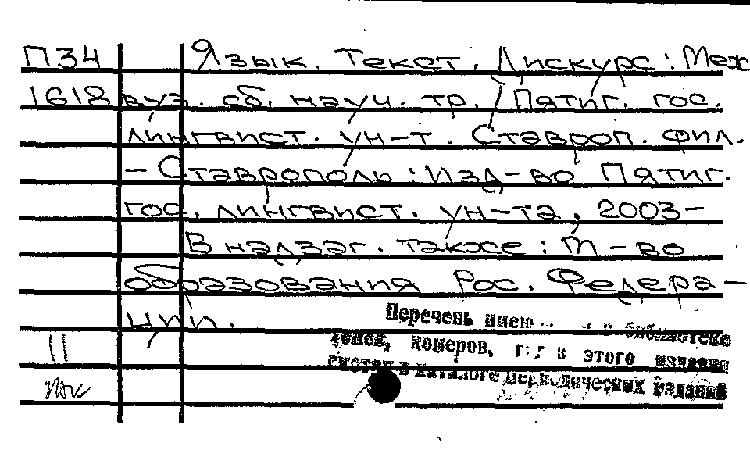 П34 Язык. Текст. Дискурс: Меж
1618 вуз. сб. науч. тр. / Пятиг. гос.
лингвист. ун-т. Ставроп. фил.
- Ставрополь: Изд-во Пятиг.
гос. лингвист. ун-та, 2003-
В надзаг. также: М-во
образования Рос. Федера-
ции.
Перечень в библиотеке
томов, номеров, этого издания
смотри в каталоге периодических изданий
11